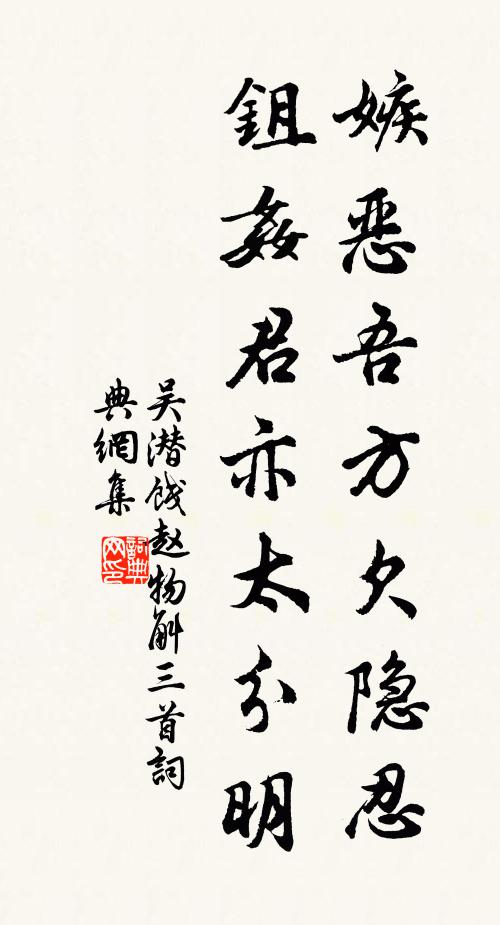 嫉恶吾方欠隐忍
鉏姦君亦太分明
吴潜饯赵物斛三首詞
典網集
詞典
网印